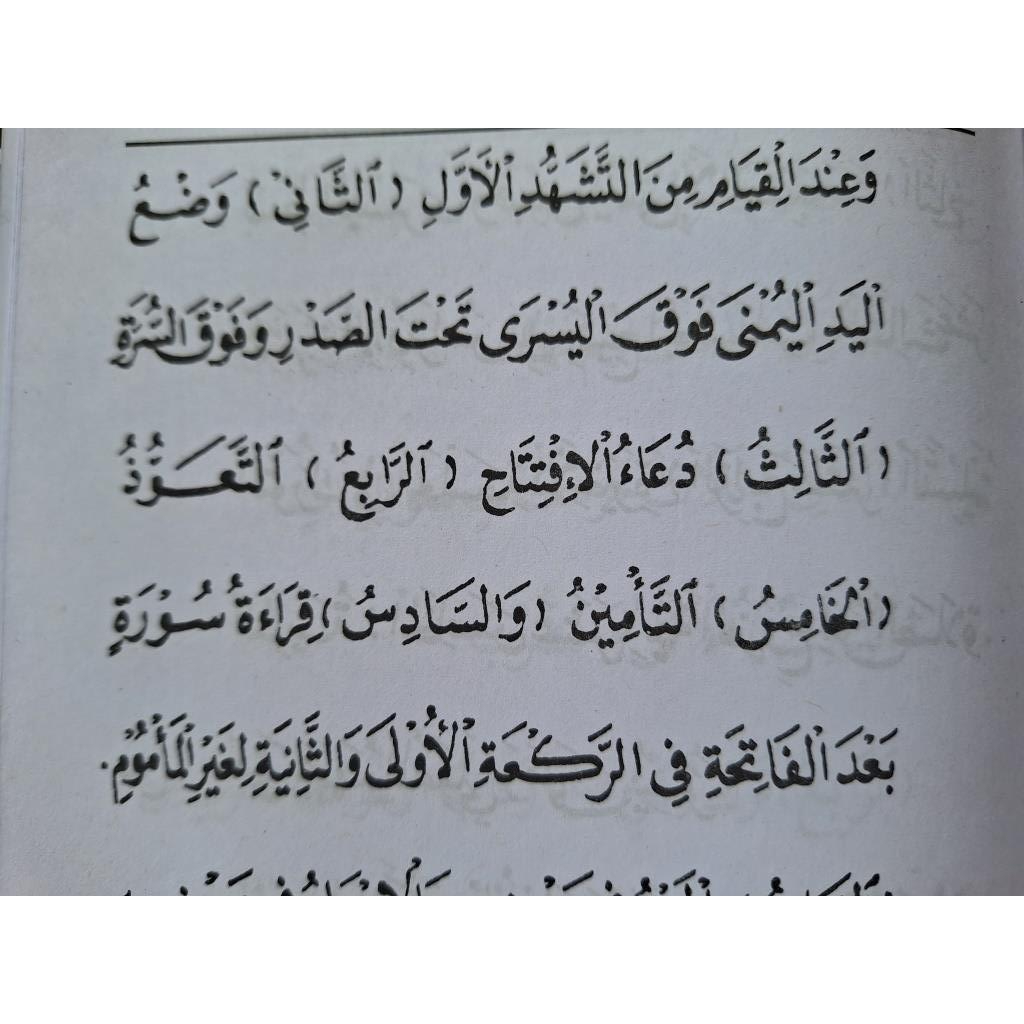 وَعِنْدَ الْقِيَامِ مِنَ التَّشَهُّدِ الْأَوَّلِ (الثَّانِيْ) وَضْعُ
الْيَدِ الْيُمْنَى فَوْقَ الْيُسْرَى تَحْتَ الصَّدْرِ وَفَوْقَ السُّرَّةِ
(الثَّالِثُ) دُعَاءُ الْإِفْتِتَاحِ (الرَّابِعُ) التَّعَوُّذُ
(الْخَامِسُ) التَّأْمِيْنُ (وَالسَّادِسُ) قِرَاءَةُ سُوْرَةٍ
بَعْدَ الْفَاتِحَةِ فِي الرَّكْعَةِ الْأُوْلَى وَالثَّانِيَةِ لِغَيْرِ الْمَأْمُوْمِ.